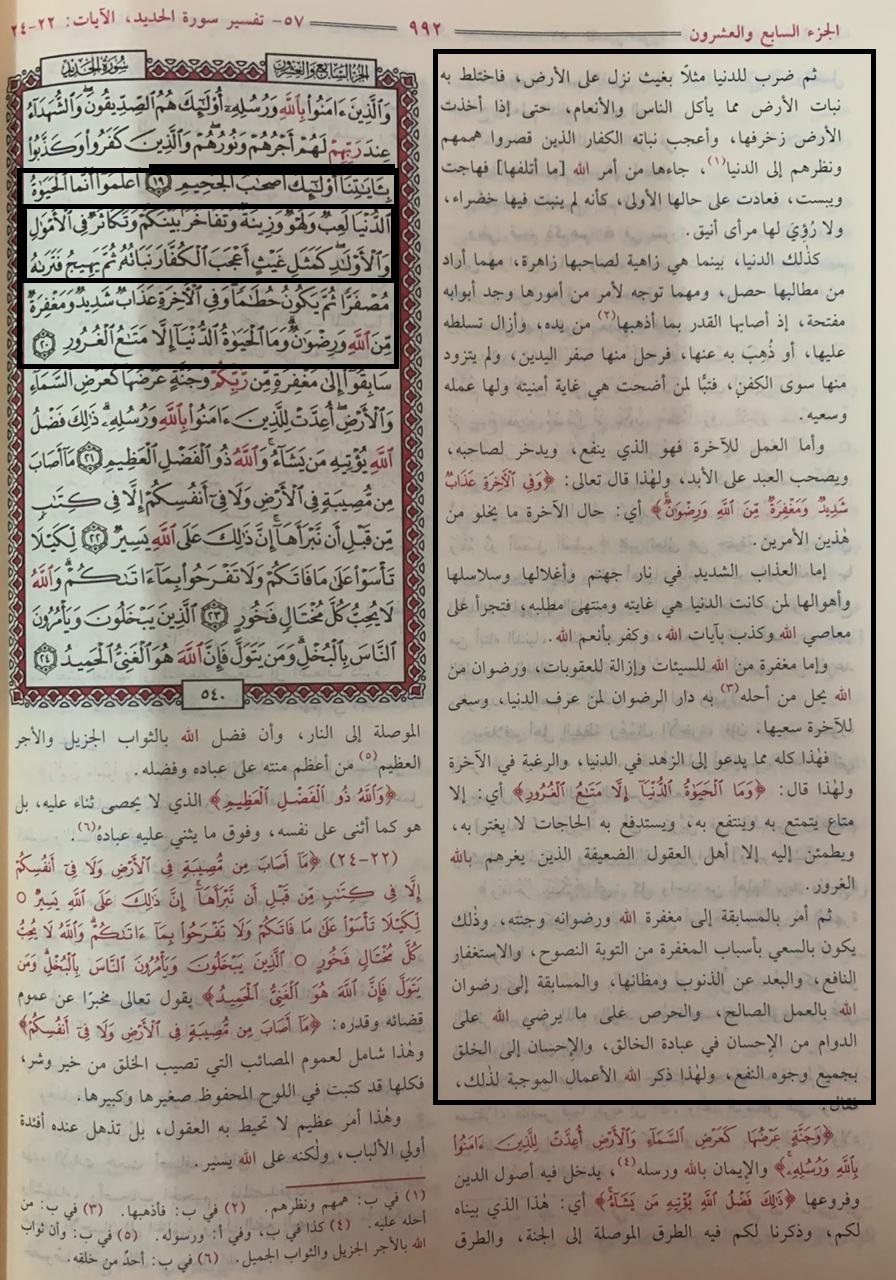 الجزء السابع والعشرون
٩٩٢
٥٧- تفسير سورة الحديد، الآيات: ٢٢-٢٤
ثم ضرب للدنيا مثلًا بغيث نزل على الأرض، فاختلط به
نبات الأرض مما يأكل الناس والأنعام، حتى إذا أخذت
الأرض زخرفها، وأعجب نباته الكفار الذين قصروا هممهم
ونظرهم إلى الدنيا(١)، جاءها من أمر الله [ما أتلفها] فهاجت
ويبست، فعادت على حالها الأولى، كأنه لم ينبت فيها خضراء،
ولا رُؤِيَ لها مرأى أنيق.
كذٰلك الدنيا، بينما هي زاهية لصاحبها زاهرة، مهما أراد
من مطالبها حصل، ومهما توجه لأمر من أمورها وجد أبوابه
مفتحة، إذ أصابها القدر بما أذهبها(٢) من يده، وأزال تسلطه
عليها، أو ذُهِبَ به عنها، فرحل منها صفر اليدين، ولم يتزود
منها سوى الكفن، فتبًّا لمن أضحت هي غاية أمنيته ولها عمله
وسعيه.
وأما العمل للآخرة فهو الذي ينفع، ويدخر لصاحبه،
ويصحب العبد على الأبد، ولهٰذا قال تعالى: ﴿وَفِي ٱلْأَخِرَةِ عَذَابٌ
شَدِيدٌ وَمَغْفِرَةٌ مِّنَ ٱللَّهِ وَرِضْوَٰنٌ﴾ أي: حال الآخرة ما يخلو من
هٰذين الأمرين.
إما العذاب الشديد في نار جهنم وأغلالها وسلاسلها
وأهوالها لمن كانت الدنيا هي غايته ومنتهى مطلبه، فتجرأ على
معاصي الله وكذب بآيات الله، وكفر بأنعم الله.
وإما مغفرة من الله للسيئات وإزالة للعقوبات، ورضوان من
الله يحل من أحله(٣) به دار الرضوان لمن عرف الدنيا، وسعى
للآخرة سعيها.
فهٰذا كله مما يدعو إلى الزهد في الدنيا، والرغبة في الآخرة
ولهٰذا قال: ﴿وَمَا ٱلْحَيَوٰةُ ٱلدُّنْيَآ إِلَّا مَتَٰعُ ٱلْغُرُورِ﴾ أي: إلا
متاع يتمتع به وينتفع به، ويستدفع به الحاجات لا يغتر به،
ويطمئن إليه إلا أهل العقول الضعيفة الذين يغرهم بالله
الغرور.
ثم أمر بالمسابقة إلى مغفرة الله ورضوانه وجنته، وذٰلك
يكون بالسعي بأسباب المغفرة من التوبة النصوح، والاستغفار
النافع، والبعد عن الذنوب ومظانها، والمسابقة إلى رضوان
الله بالعمل الصالح، والحرص على ما يرضي الله على
الدوام من الإحسان في عبادة الخالق، والإحسان إلى الخلق
بجميع وجوه النفع، ولهٰذا ذكر الله الأعمال الموجبة لذٰلك،
فقال:
﴿وَجَنَّةٍ عَرْضُهَا كَعَرْضِ ٱلسَّمَآءِ وَٱلْأَرْضِ أُعِدَّتْ لِلَّذِينَ ءَامَنُوا۟
بِٱللَّهِ وَرُسُلِهِۦ﴾ والإيمان بالله ورسله(٤)، يدخل فيه أصول الدين
وفروعها ﴿ذَٰلِكَ فَضْلُ ٱللَّهِ يُؤْتِيهِ مَن يَشَآءُ﴾ أي: هٰذا الذي بيناه
لكم، وذكرنا لكم فيه الطرق الموصلة إلى الجنة، والطرق
الجزء السابع والعشرون
سورة الحديد
وَٱلَّذِينَ ءَامَنُوا۟ بِٱللَّهِ وَرُسُلِهِۦٓ أُو۟لَٰٓئِكَ هُمُ ٱلصِّدِّيقُونَ وَٱلشُّهَدَآءُ
عِندَ رَبِّهِمْ لَهُمْ أَجْرُهُمْ وَنُورُهُمْ وَٱلَّذِينَ كَفَرُوا۟ وَكَذَّبُوا۟
بِـَٔايَٰتِنَآ أُو۟لَٰٓئِكَ أَصْحَٰبُ ٱلْجَحِيمِ ١٩ ٱعْلَمُوٓا۟ أَنَّمَا ٱلْحَيَوٰةُ
ٱلدُّنْيَا لَعِبٌ وَلَهْوٌ وَزِينَةٌ وَتَفَاخُرٌۢ بَيْنَكُمْ وَتَكَاثُرٌ فِي ٱلْأَمْوَٰلِ
وَٱلْأَوْلَٰدِ كَمَثَلِ غَيْثٍ أَعْجَبَ ٱلْكُفَّارَ نَبَاتُهُۥ ثُمَّ يَهِيجُ فَتَرَىٰهُ
مُصْفَرًّا ثُمَّ يَكُونُ حُطَٰمًا وَفِي ٱلْأَخِرَةِ عَذَابٌ شَدِيدٌ وَمَغْفِرَةٌ
مِّنَ ٱللَّهِ وَرِضْوَٰنٌ وَمَا ٱلْحَيَوٰةُ ٱلدُّنْيَآ إِلَّا مَتَٰعُ ٱلْغُرُورِ ٢٠
سَابِقُوٓا۟ إِلَىٰ مَغْفِرَةٍ مِّن رَّبِّكُمْ وَجَنَّةٍ عَرْضُهَا كَعَرْضِ ٱلسَّمَآءِ
وَٱلْأَرْضِ أُعِدَّتْ لِلَّذِينَ ءَامَنُوا۟ بِٱللَّهِ وَرُسُلِهِۦ ذَٰلِكَ فَضْلُ
ٱللَّهِ يُؤْتِيهِ مَن يَشَآءُ وَٱللَّهُ ذُو ٱلْفَضْلِ ٱلْعَظِيمِ ٢١ مَآ أَصَابَ
مِن مُّصِيبَةٍ فِي ٱلْأَرْضِ وَلَا فِىٓ أَنفُسِكُمْ إِلَّا فِى كِتَٰبٍ
مِّن قَبْلِ أَن نَّبْرَأَهَآ إِنَّ ذَٰلِكَ عَلَى ٱللَّهِ يَسِيرٌ ٢٢ لِّكَيْلَا
تَأْسَوْا۟ عَلَىٰ مَا فَاتَكُمْ وَلَا تَفْرَحُوا۟ بِمَآ ءَاتَىٰكُمْ وَٱللَّهُ
لَا يُحِبُّ كُلَّ مُخْتَالٍ فَخُورٍ ٢٣ ٱلَّذِينَ يَبْخَلُونَ وَيَأْمُرُونَ
ٱلنَّاسَ بِٱلْبُخْلِ وَمَن يَتَوَلَّ فَإِنَّ ٱللَّهَ هُوَ ٱلْغَنِىُّ ٱلْحَمِيدُ ٢٤
٥٤٠
الموصلة إلى النار، وأن فضل الله بالثواب الجزيل والأجر
العظيم(٥) من أعظم منته على عباده وفضله.
﴿وَٱللَّهُ ذُو ٱلْفَضْلِ ٱلْعَظِيمِ﴾ الذي لا يحصى ثناء عليه، بل
هو كما أثنى على نفسه، وفوق ما يثني عليه عباده(٦).
(٢٢-٢٤) ﴿مَآ أَصَابَ مِن مُّصِيبَةٍ فِي ٱلْأَرْضِ وَلَا فِىٓ أَنفُسِكُمْ
إِلَّا فِى كِتَٰبٍ مِّن قَبْلِ أَن نَّبْرَأَهَآ إِنَّ ذَٰلِكَ عَلَى ٱللَّهِ يَسِيرٌ ○
لِّكَيْلَا تَأْسَوْا۟ عَلَىٰ مَا فَاتَكُمْ وَلَا تَفْرَحُوا۟ بِمَآ ءَاتَىٰكُمْ وَٱللَّهُ لَا يُحِبُّ
كُلَّ مُخْتَالٍ فَخُورٍ ○ ٱلَّذِينَ يَبْخَلُونَ وَيَأْمُرُونَ ٱلنَّاسَ بِٱلْبُخْلِ وَمَن
يَتَوَلَّ فَإِنَّ ٱللَّهَ هُوَ ٱلْغَنِىُّ ٱلْحَمِيدُ﴾ يقول تعالى مخبرًا عن عموم
قضائه وقدره: ﴿مَآ أَصَابَ مِن مُّصِيبَةٍ فِي ٱلْأَرْضِ وَلَا فِىٓ أَنفُسِكُمْ﴾
وهٰذا شامل لعموم المصائب التي تصيب الخلق من خير وشر،
فكلها قد كتبت في اللوح المحفوظ صغيرها وكبيرها.
وهٰذا أمر عظيم لا تحيط به العقول، بل تذهل عنده أفئدة
أولي الألباب، ولٰكنه على الله يسير.
(١) في ب: هممهم ونظرهم. (٢) في ب: فأذهبها. (٣) في ب: من
أحله عليه. (٤) كذا في ب، وفي أ: ورسوله. (٥) في ب: وأن ثواب
الله بالأجر الجزيل والثواب الجميل. (٦) في ب: أحدٌ من خلقه.